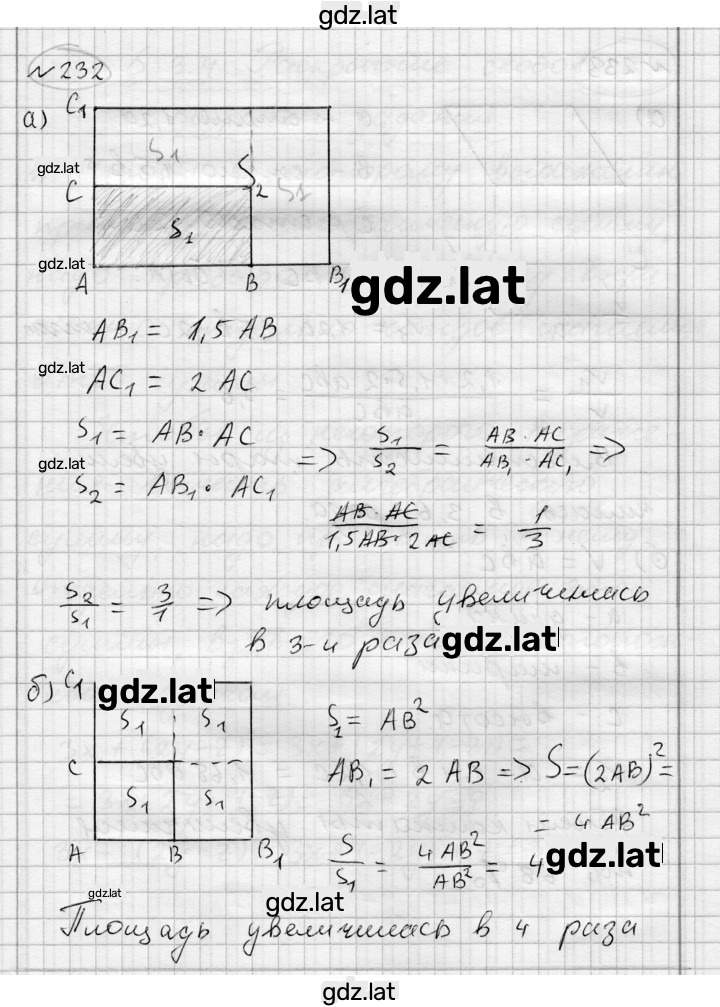 gdz.lat
№232
а)
C₁
S₁
gdz.lat
C
S₂
S₁
S₁
gdz.lat
A B B₁
gdz.lat
AB₁ = 1,5 AB
gdz.lat
AC₁ = 2 AC
S₁ = AB · AC
gdz.lat
S₂ = AB₁ · AC₁
=> S₁/S₂ = AB · AC / AB₁ · AC₁ =>
AB · AC / 1,5AB · 2AC = 1/3
S₂/S₁ = 3/1 => площадь увеличилась
в 3-и раза
gdz.lat
б) C₁
gdz.lat
S₁ S₁
C
S₁ S₁
A B B₁
S₁ = AB²
AB₁ = 2 AB => S = (2AB)² =
= 4 AB²
S/S₁ = 4AB²/AB² = 4
gdz.lat
gdz.lat
gdz.lat
Площадь увеличилась в 4 раза
gdz.lat